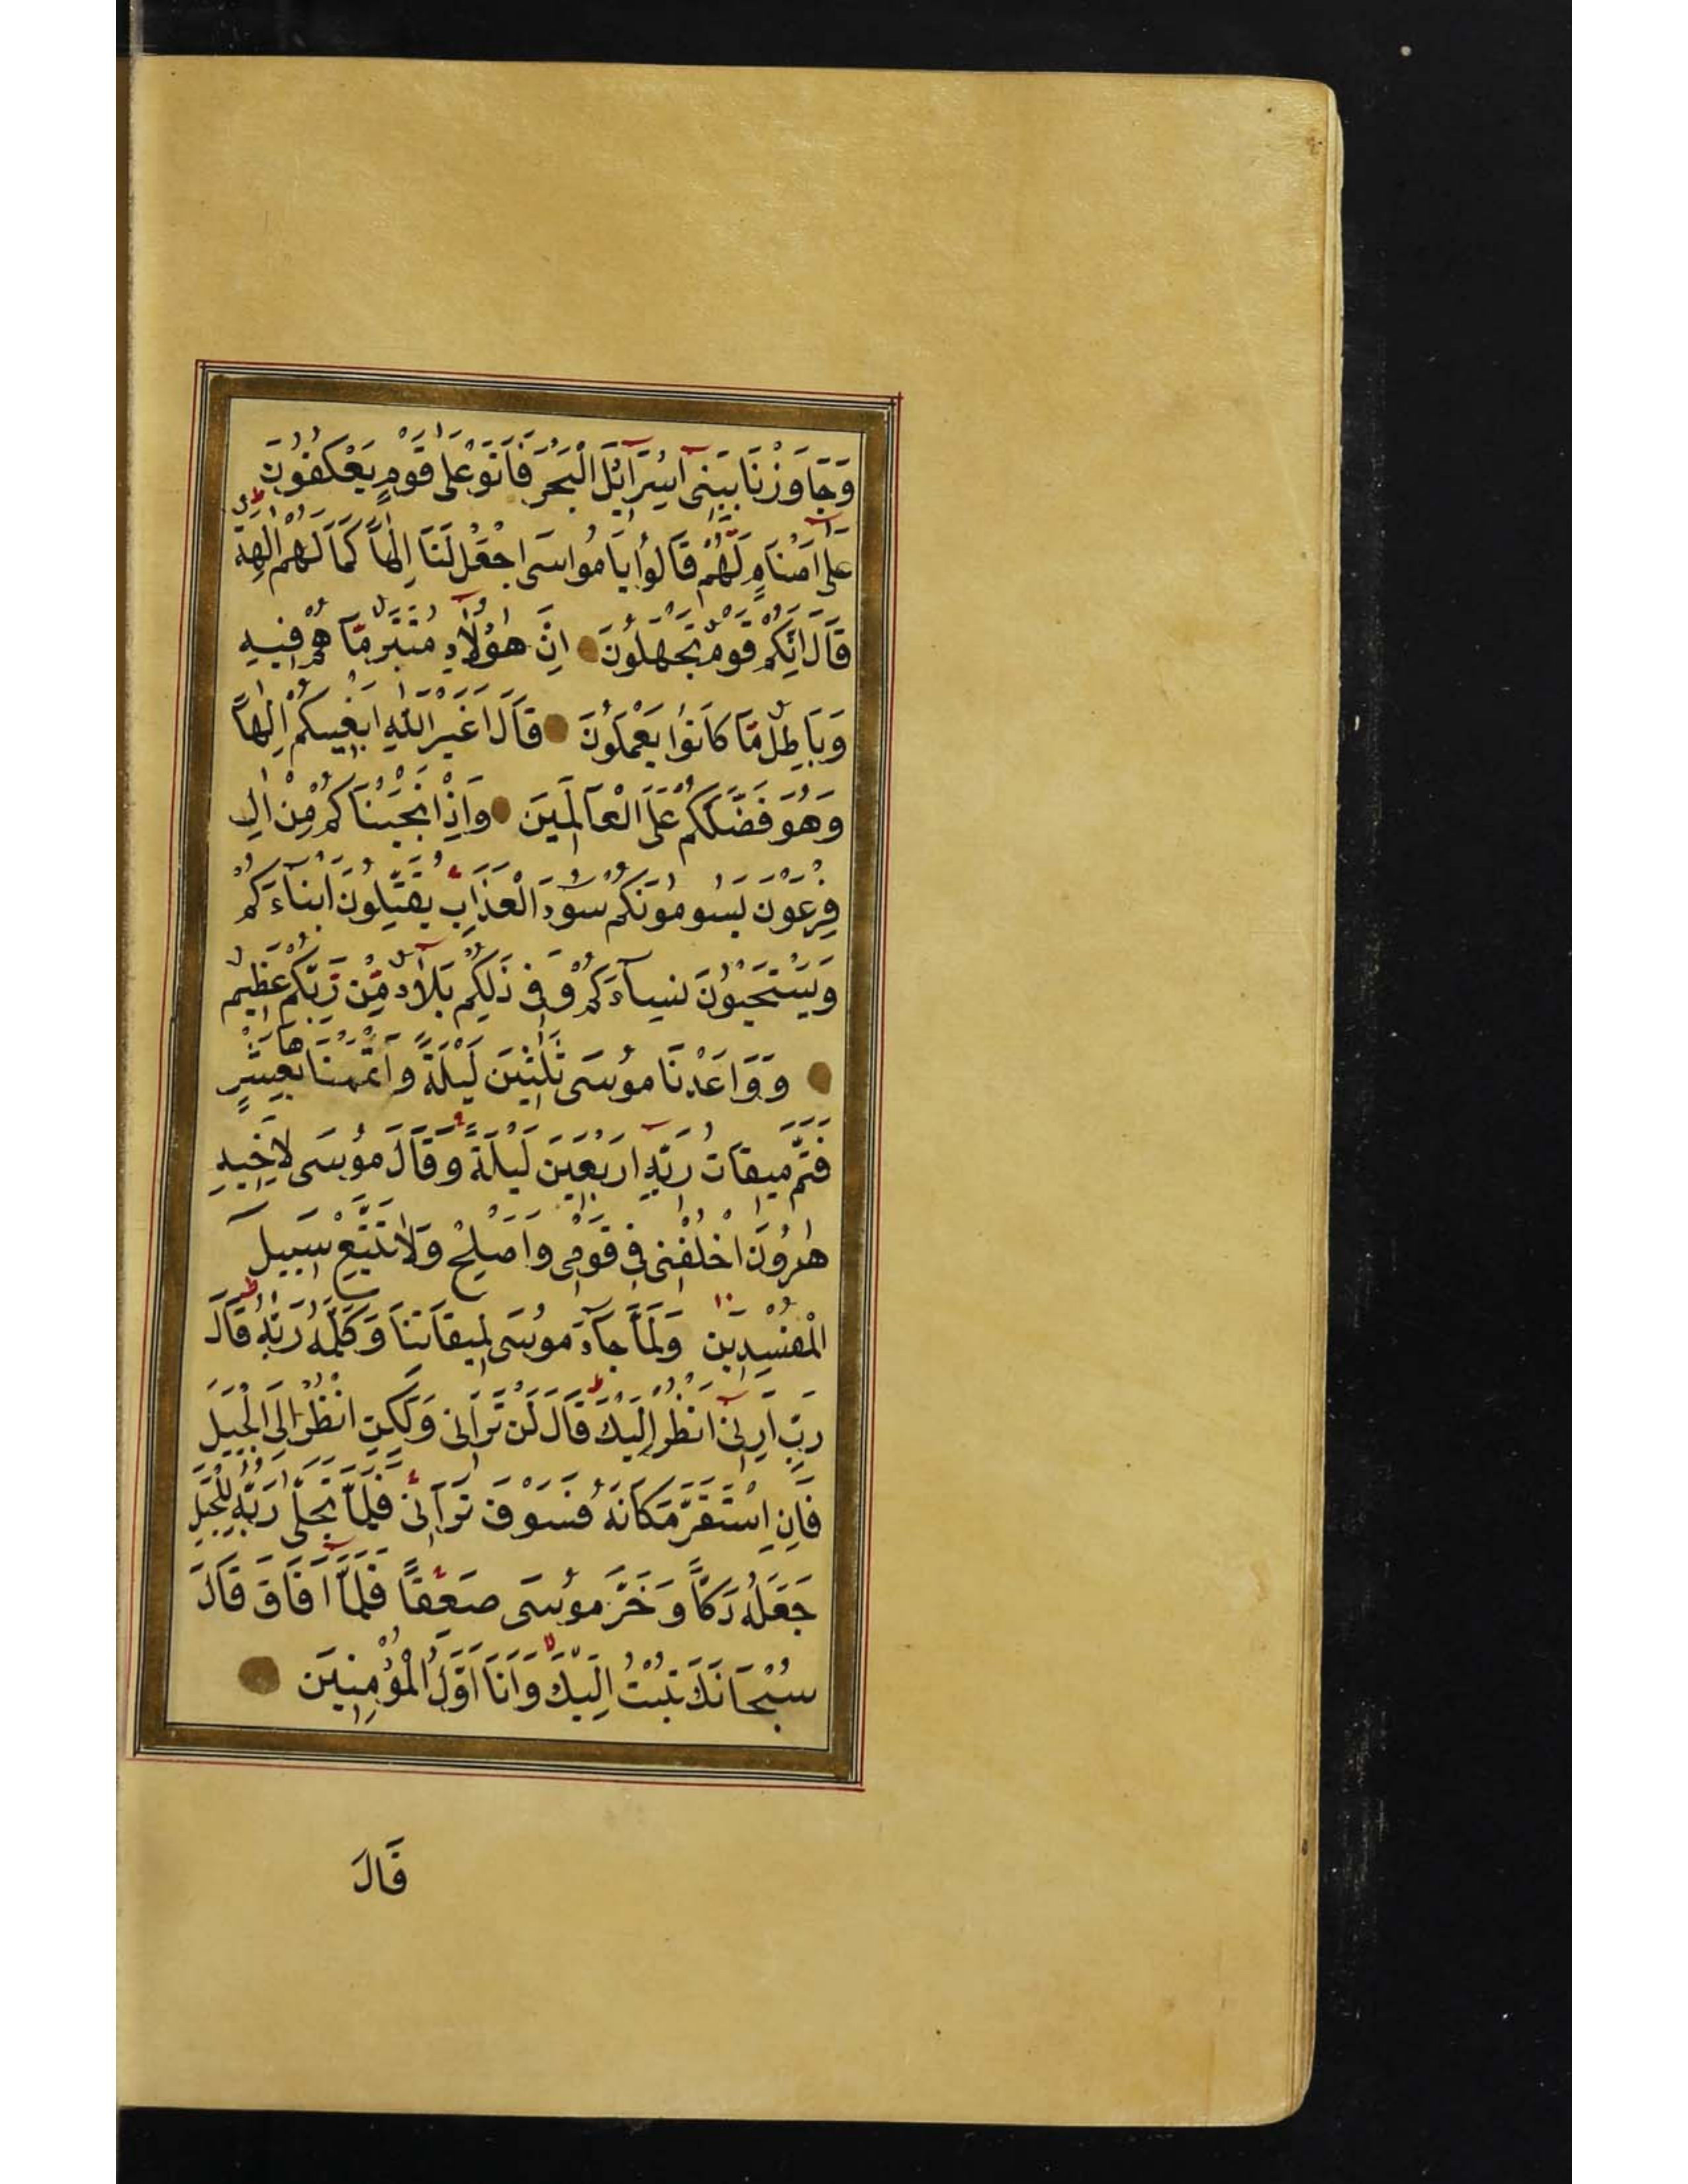 وَجَاوَزْنَا بِبَنِى اِسْرَآئِلَ الْبَحْرَ فَاَتَوْا عَلٰى قَوْمٍ يَعْكُفُوُنَ
عَلٰٓى اَصْنَامٍ لَهُمْ قَالُوا يَا مُواسَى اجْعَلْ لَنَا اِلٰهاً كَمَا لَهُمْ اٰلِهَةٌ
قَالَ اِنَّكُمْ قَوْمٌ تَجْهَلُونَ اِنَّ هٰؤُلَآءِ مُتَبَّرٌ مَّا هُمْ فِيهِ
وَبَاطِلٌ مَّا كَانُوا يَعْمَلُونَ قَالَ اَغَيْرَ اللّٰهِ اَبْغِيكُمْ اِلٰهاً
وَهُوَ فَضَّلَكُمْ عَلَى الْعَالَمِينَ وَاِذْ اَنْجَيْنَاكُمْ مِنْ اٰلِ
فِرْعَوْنَ يَسُومُونَكُمْ سُوۤءَ الْعَذَابِ يُقَتِّلُونَ اَبْنَآءَكُمْ
وَيَسْتَحْيُونَ نِسَآءَكُمْ وَفِى ذٰلِكُمْ بَلَآءٌ مِّنْ رَبِّكُمْ عَظِيمٌ
وَوَاعَدْنَا مُوسَى ثَلٰثِينَ لَيْلَةً وَاَتْمَمْنَاهَا بِعَشْرٍ
فَتَمَّ مِيقَاتُ رَبِّهِ اَرْبَعِينَ لَيْلَةً وَقَالَ مُوسَى لِاَخِيهِ
هٰرُونَ اخْلُفْنِى فِى قَوْمِى وَاَصْلِحْ وَلَا تَتَّبِعْ سَبِيلَ
الْمُفْسِدِينَ وَلَمَّا جَآءَ مُوسَى لِمِيقَاتِنَا وَكَلَّمَهُ رَبُّهُ قَالَ
رَبِّ اَرِنِىٓ اَنْظُرْ اِلَيْكَ قَالَ لَنْ تَرَانِى وَلٰكِنِ انْظُرْ اِلَى الْجَبَلِ
فَاِنِ اسْتَقَرَّ مَكَانَهُ فَسَوْفَ تَرَانِى فَلَمَّا تَجَلّٰى رَبُّهُ لِلْجَبَلِ
جَعَلَهُ دَكّاً وَخَرَّ مُوسَى صَعِقاً فَلَمَّآ اَفَاقَ قَالَ
سُبْحَانَكَ تُبْتُ اِلَيْكَ وَاَنَا اَوَّلُ الْمُؤْمِنِينَ
قَالَ